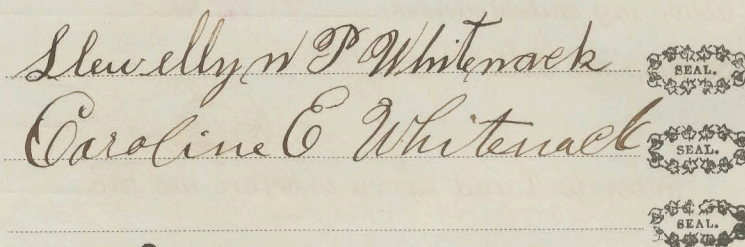 Llewellyn P Whitenack SEAL.
Caroline E Whitenack SEAL.
SEAL.